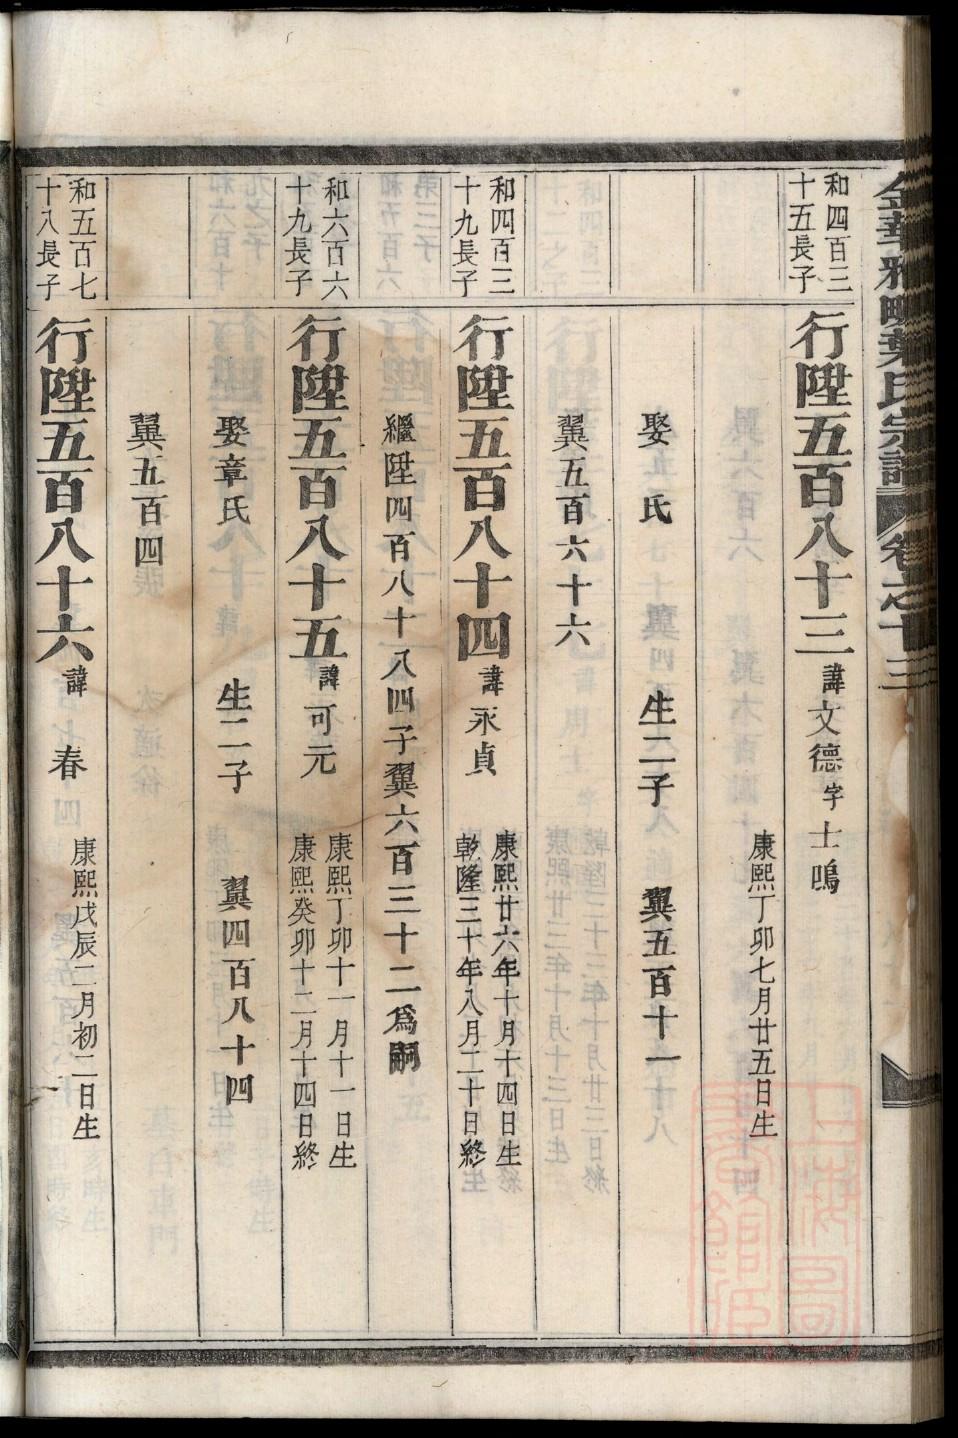 金華雅畈葉氏宗譜 卷之十三
和四百三
十五長子
行陞五百八十三 諱文德 字士鳴
康熙丁卯七月廿五日生
娶 氏 生二子 翼五百十一
翼五百六十六
和四百三
十九長子
行陞五百八十四 諱永貞
康熙廿六年十月十四日生
乾隆三十年八月二十日終
繼陞四百八十八四子翼六百三十二爲嗣
和六百六
十九長子
行陞五百八十五 諱可元
康熙丁卯十一月十一日生
康熙癸卯十二月十四日終
娶章氏 生二子 翼四百八十四
翼五百四
和五百七
十八長子
行陞五百八十六 諱 春
康熙戊辰二月初二日生